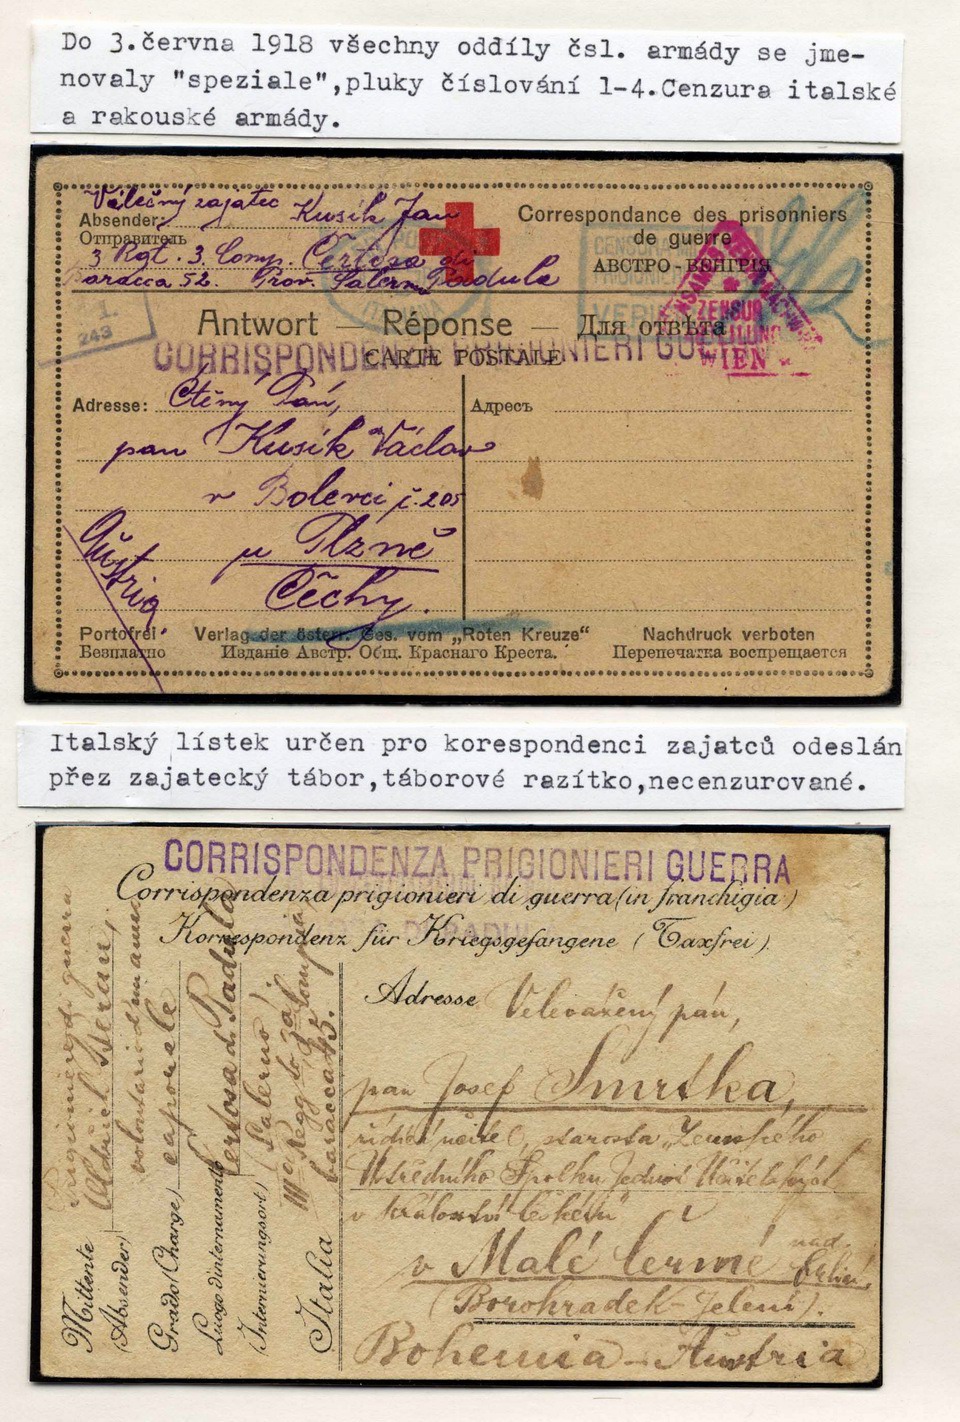 Do 3.června 1918 všechny oddíly čsl. armády se jme-
novaly "speziale",pluky číslování 1-4.Cenzura italské
a rakouské armády.
Válečný zajatec Kusík Jan
Absender:
Отправитель
3 Rgt. 3. Comp. Čertosa di
Baracca 52. Prov. Salerno Padula
Correspondance des prisonniers
de guerre
АВСТРО-ВЕНГРІЯ
1.
243
ZENSUR
WIEN
Antwort — Réponse — Для отвѣта
CORRISPONDENZA PRIGIONIERI GUERRA
CARTE POSTALE
Adresse: Ctěný Pán,
Адресъ
pan Kusík Václav
v Bolevci č. 205
u Plzně
Čechy.
Austria
Portofrei.
Безплатно
Verlag der österr. Ges. vom „Roten Kreuze"
Изданіе Австр. Общ. Краснаго Креста.
Nachdruck verboten
Перепечатка воспрещается
Italský lístek určen pro korespondenci zajatců odeslán
přez zajatecký tábor,táborové razítko,necenzurované.
CORRISPONDENZA PRIGIONIERI GUERRA
Corrispondenza prigionieri di guerra (in franchigia)
Korrespondenz für Kriegsgefangene (Taxfrei).
Adresse Velevážený pán,
pan Josef Smrtka,
řídící učitel, starosta „Zemského
Ústředního Spolku Jednot Učitelských
v království českém"
v Malé Čermé nad Orlicí
(Borohradek-Jelení).
Bohemia - Austria
Mittente
(Absender)
Prigioniero di guerra
Oldřich Beran,
Grado (Charge)
caporale
Luogo d'internamento
(Internierungsort)
Certosa di Padula
(Salerno).
baracca 45.
Italia